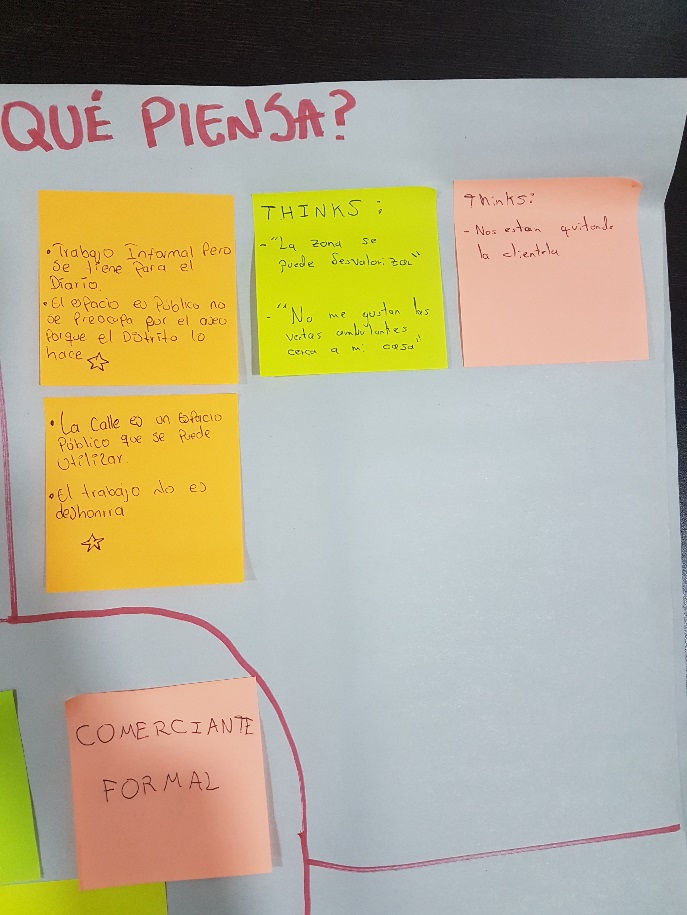 QUÉ PIENSA?
• Trabajo Informal Pero
se tiene para el
Diario.
• El espacio es Público no
se Preocupa por el aseo
Porque el Distrito lo
hace
THINKS:
- "La zona se
puede desvalorizar"
- "No me gustan las
ventas ambulantes
cerca a mi casa"
Thinks:
- Nos estan quitando
la clientela
• La Calle es un Espacio
Público que se puede
Utililar.
• El trabajo No es
deshonrra
COMERCIANTE
FORMAL